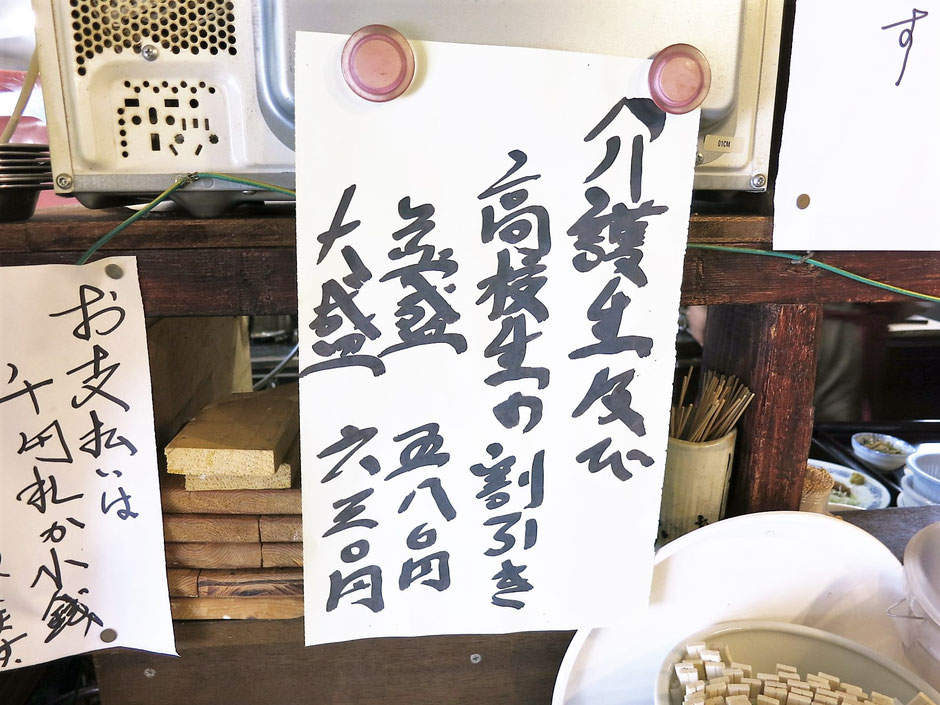 す
介護生及び
高校生の割引き
並盛 五八〇円
大盛 六三〇円
お支払いは
千円札か小銭
01CM